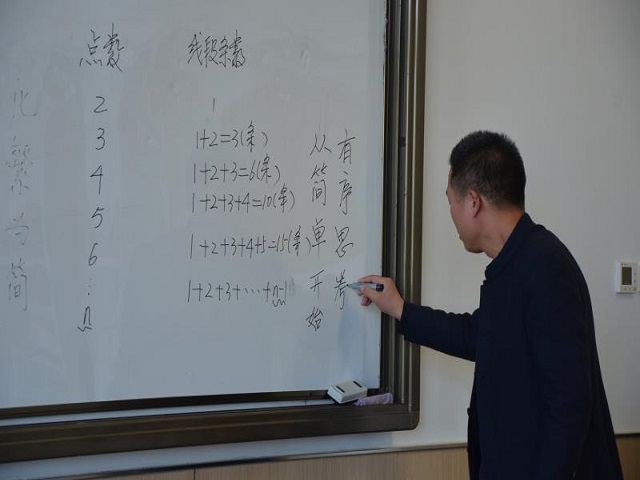 点数 线段条数
2 1
3 1+2=3(条)
4 1+2+3=6(条)
5 1+2+3+4=10(条)
6 1+2+3+4+5=15(条)
⋮
n 1+2+3+⋯+n-1
化繁为简
从简单开始
有序思考